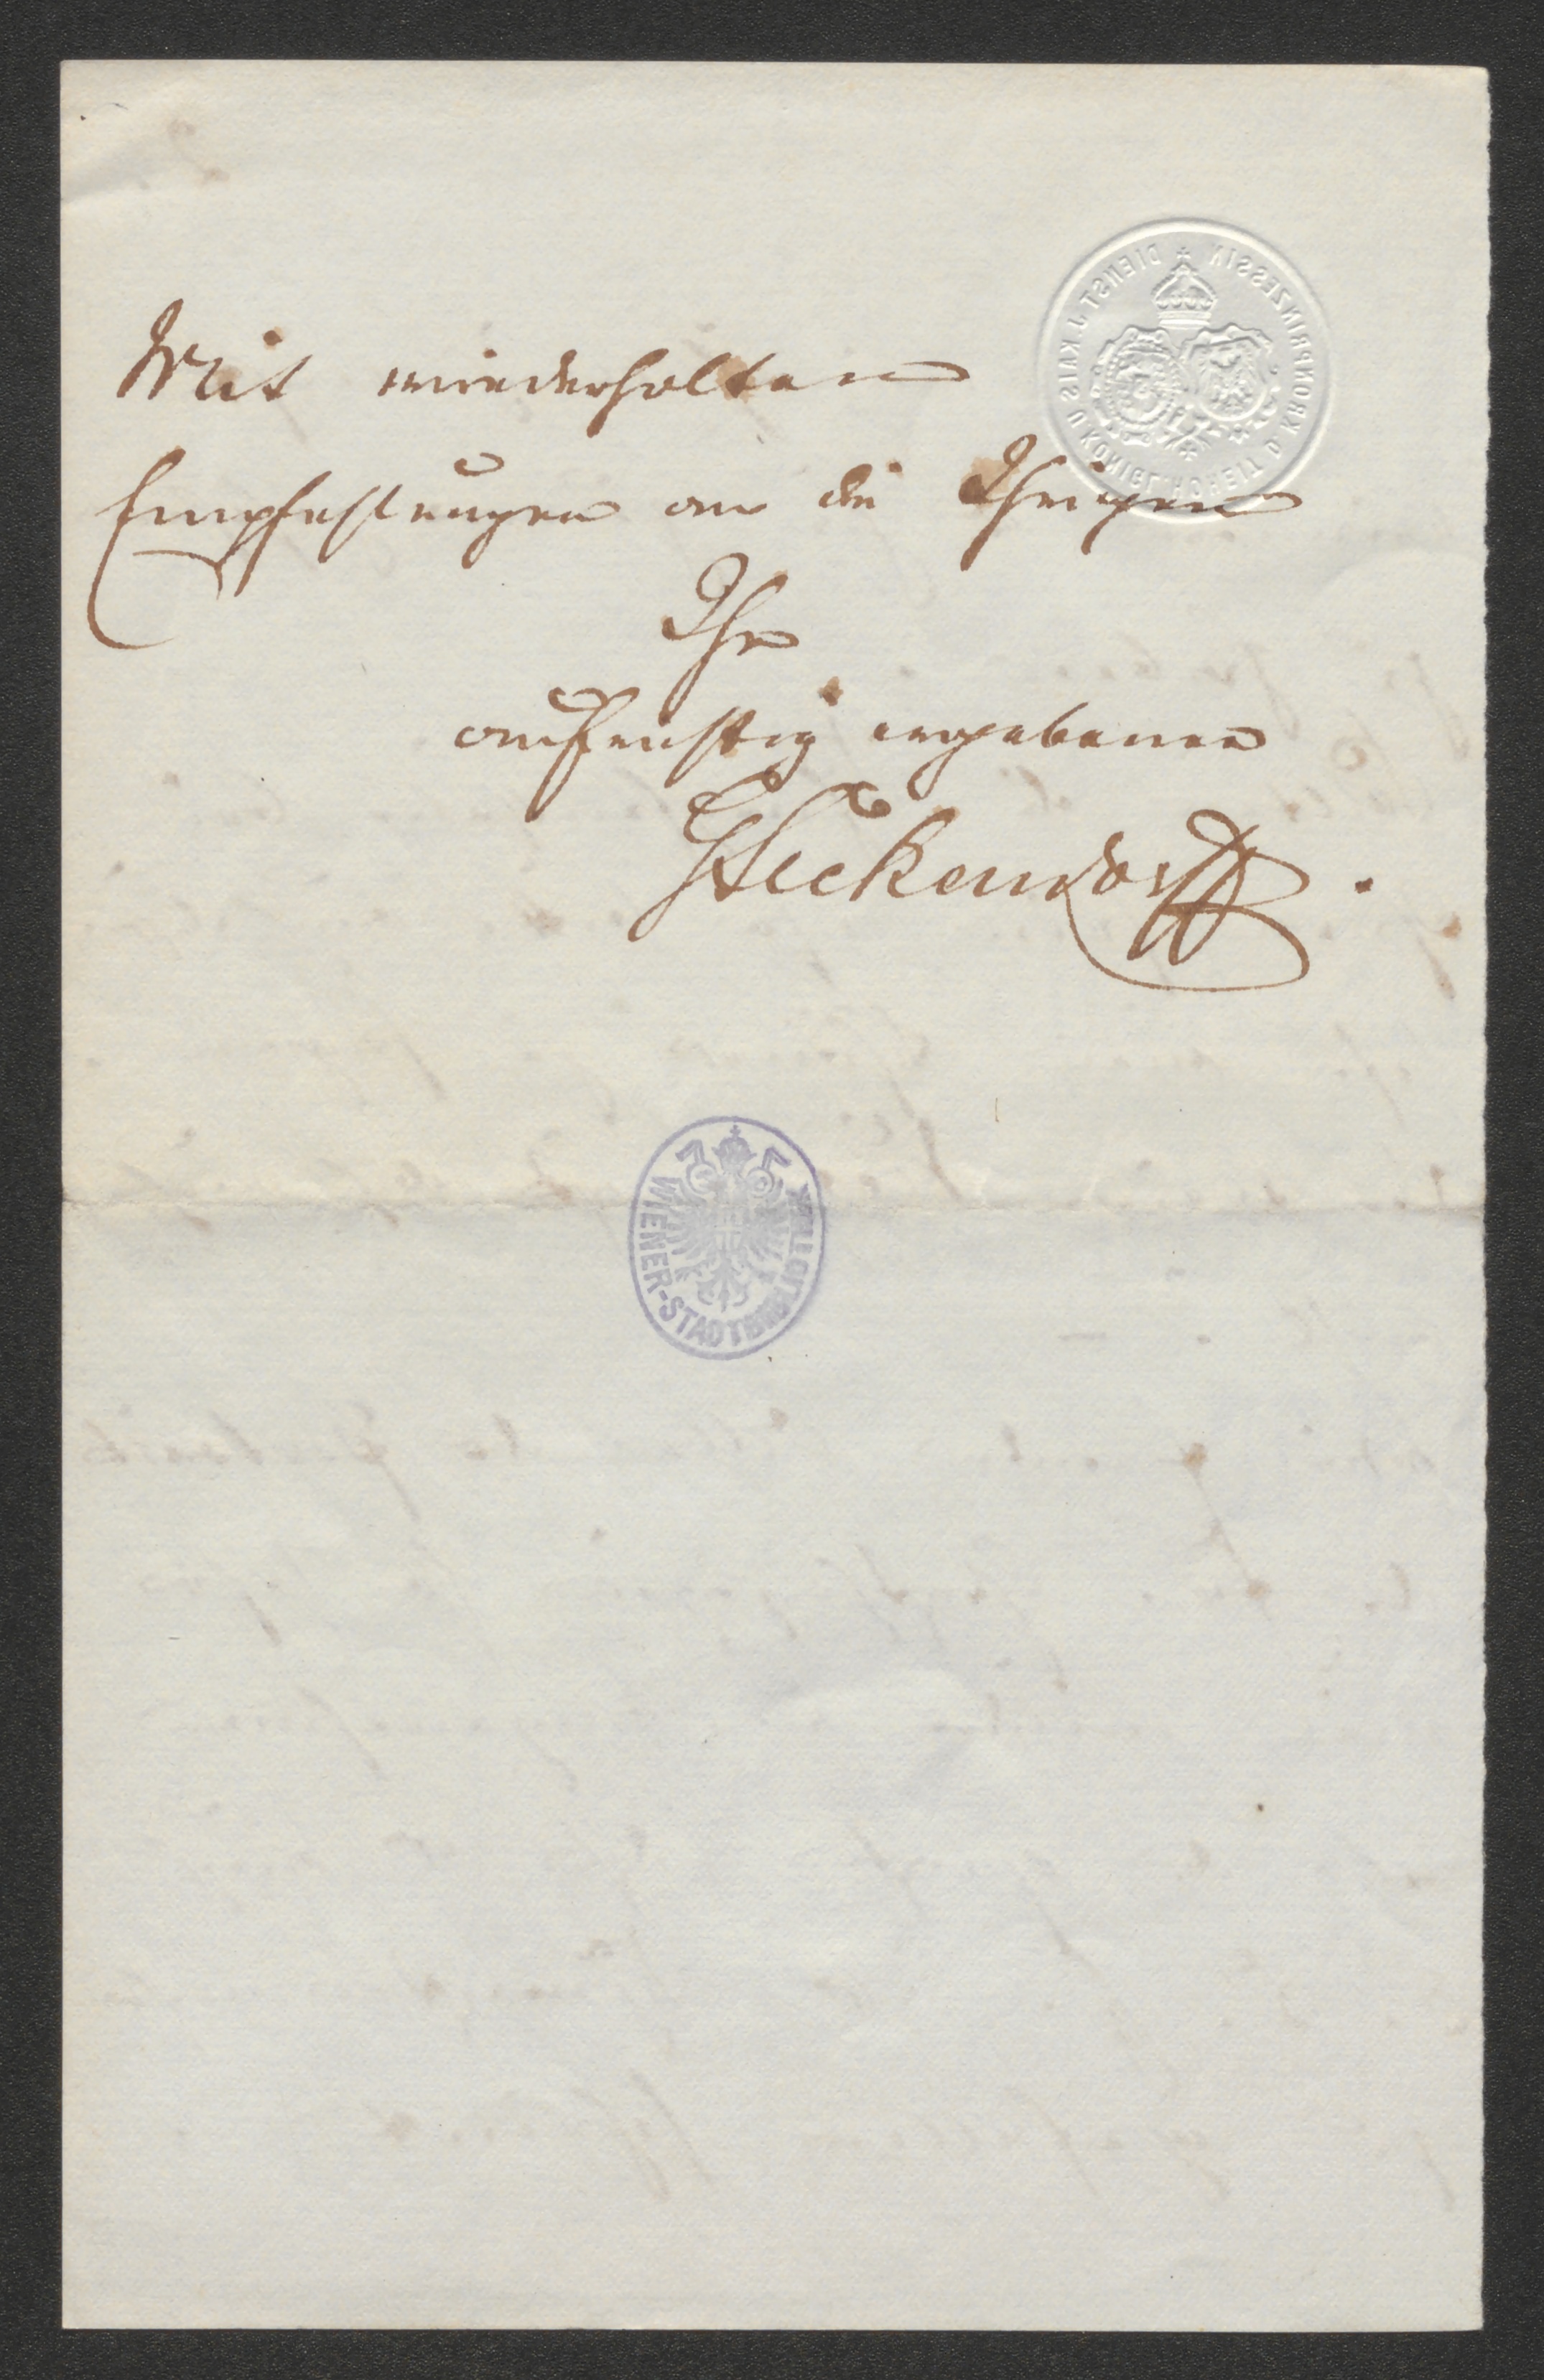 DIENST J. KAIS U KÖNIGL. HOHEIT D KRONPRINZESSIN
Mit wiederholten
Empfehlungen an die Ihrigen
Ihr
aufrichtig ergebener
GSeckendorff.
WIENER-STADTBIBLIOTHEK